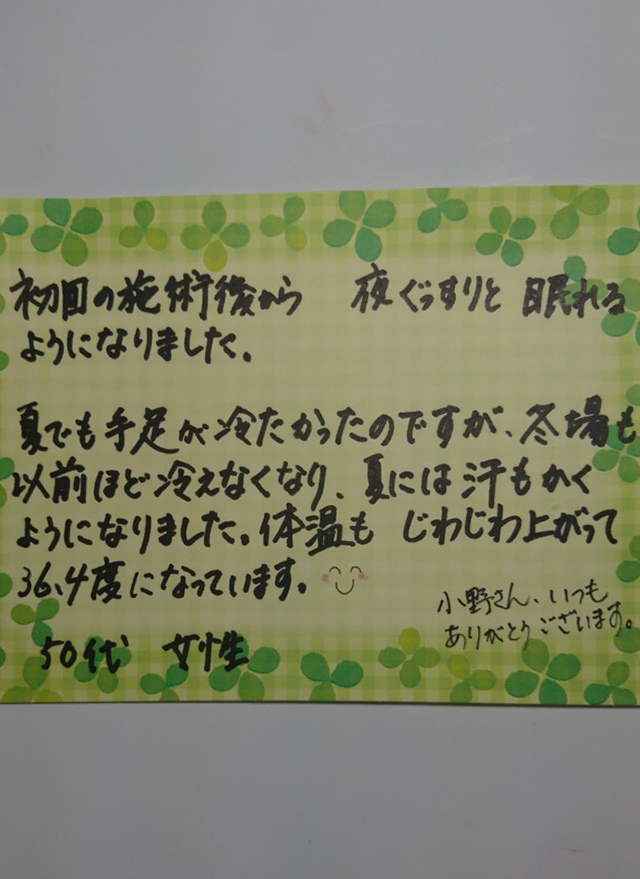 初回の施術後から 夜ぐっすりと眠れる
ようになりました。
夏でも手足が冷たかったのですが、冬場も
以前ほど冷えなくなり、夏には汗もかく
ようになりました。体温も じわじわ上がって
36.4度になっています。
小野さん、いつも
ありがとうございます。
50代 女性